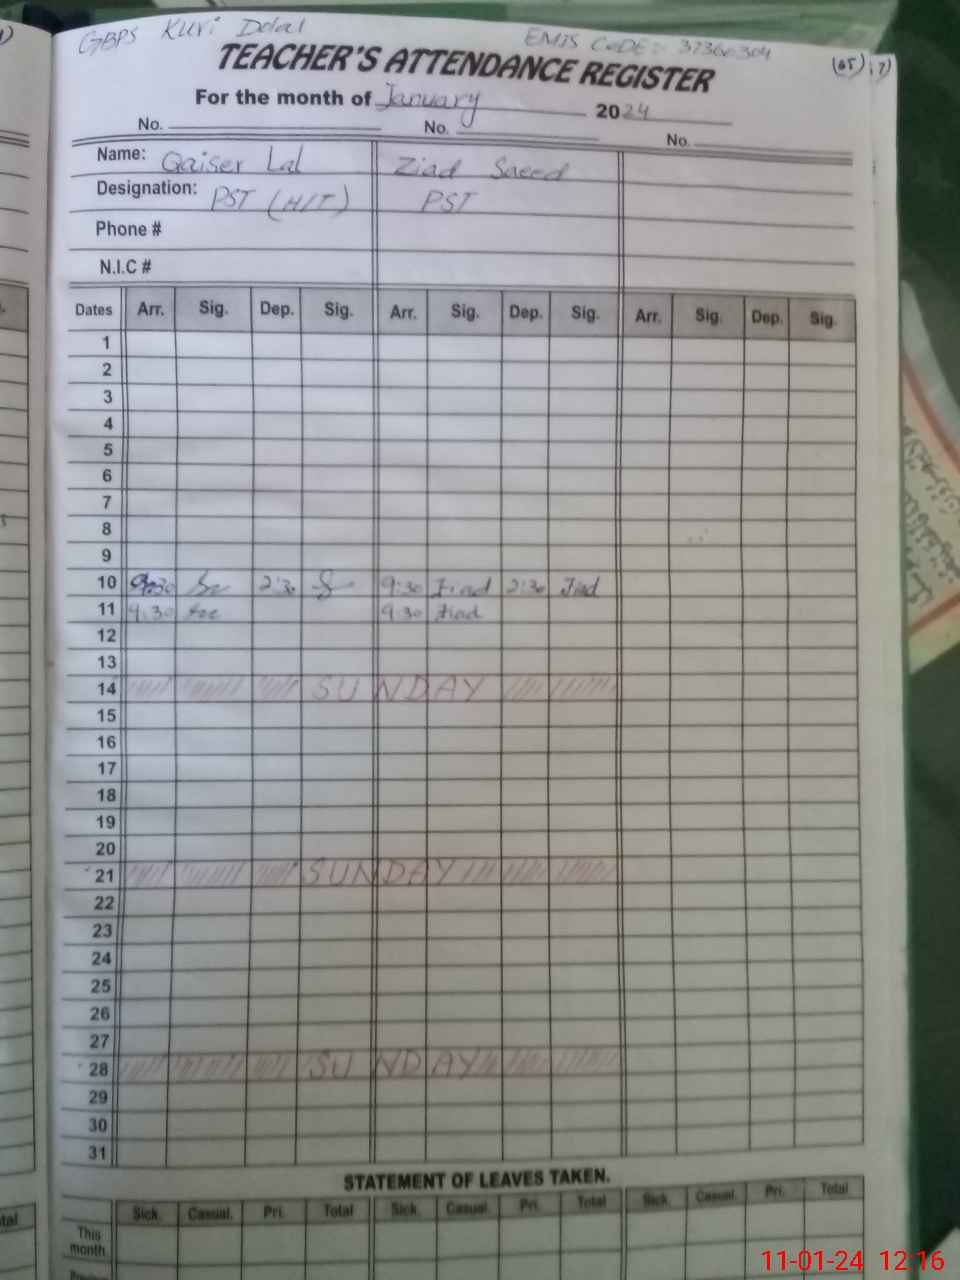 GBPS Kuri Dolal EMIS CODE: 37360304
TEACHER'S ATTENDANCE REGISTER
For the month of January 2024
No. No. No.
Name: Qaiser Lal Ziad Saeed
Designation: PST (H/T) PST
Phone #
N.I.C #
Dates Arr. Sig. Dep. Sig. Arr. Sig. Dep. Sig. Arr. Sig. Dep. Sig.
1
2
3
4
5
6
7
8
9
10 9:30 2:30 9:30 Ziad 2:30 Ziad
11 9:30 9:30 Ziad
12
13
14 SUNDAY
15
16
17
18
19
20
21 SUNDAY
22
23
24
25
26
27
28 SUNDAY
29
30
31
STATEMENT OF LEAVES TAKEN.
Sick. Casual. Pri. Total Sick. Casual. Pri. Total Sick. Casual. Pri. Total
This month.
11-01-24 12:16